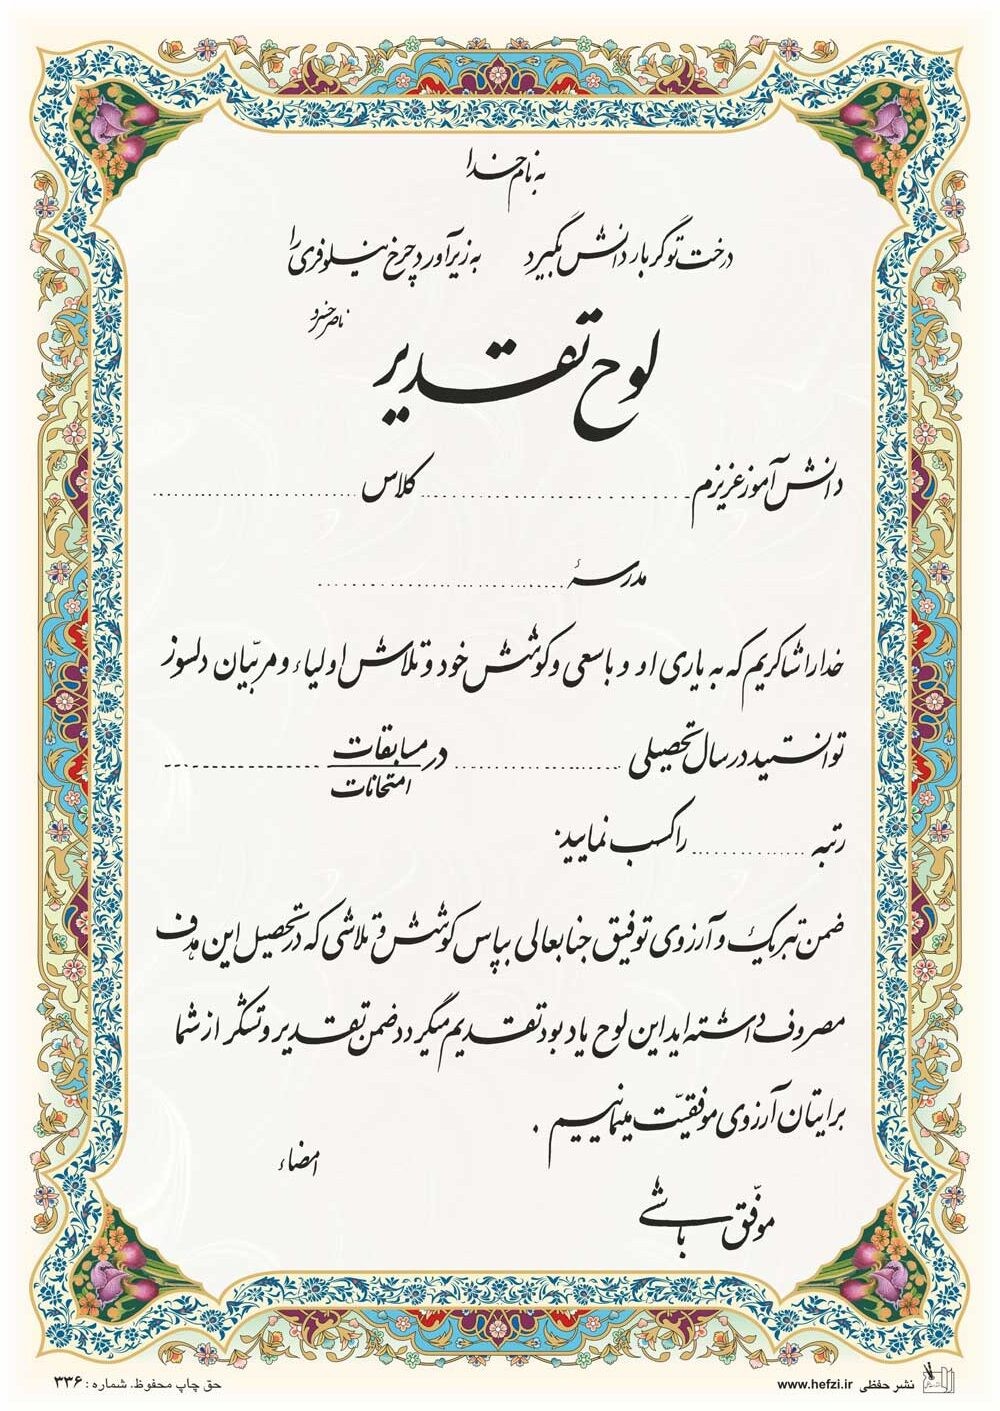 به نام خدا
درخت تو گر بار دانش بگیرد به زیر آورد چرخ نیلوفری را
ناصر خسرو
لوح تقدیر
دانش آموز عزیزم .................... کلاس ....................
مدرسهٔ ....................
خدا را شاکریم که به یاری او و با سعی و کوشش خود و تلاش اولیاء و مربّیان دلسوز
توانستید در سال تحصیلی .................... در مسابقات ....................
امتحانات
رتبه .................... را کسب نمایید.
ضمن تبریک و آرزوی توفیق جنابعالی بپاس کوشش و تلاشی که در تحصیل این هدف
مصروف داشته اید این لوح یادبود تقدیم میگردد ضمن تقدیر و تشکر از شما
برایتان آرزوی موفقیّت مینماییم .
امضاء
موفّق باشی
نشر حفظی www.hefzi.ir
حق چاپ محفوظ. شماره : ۳۳۶